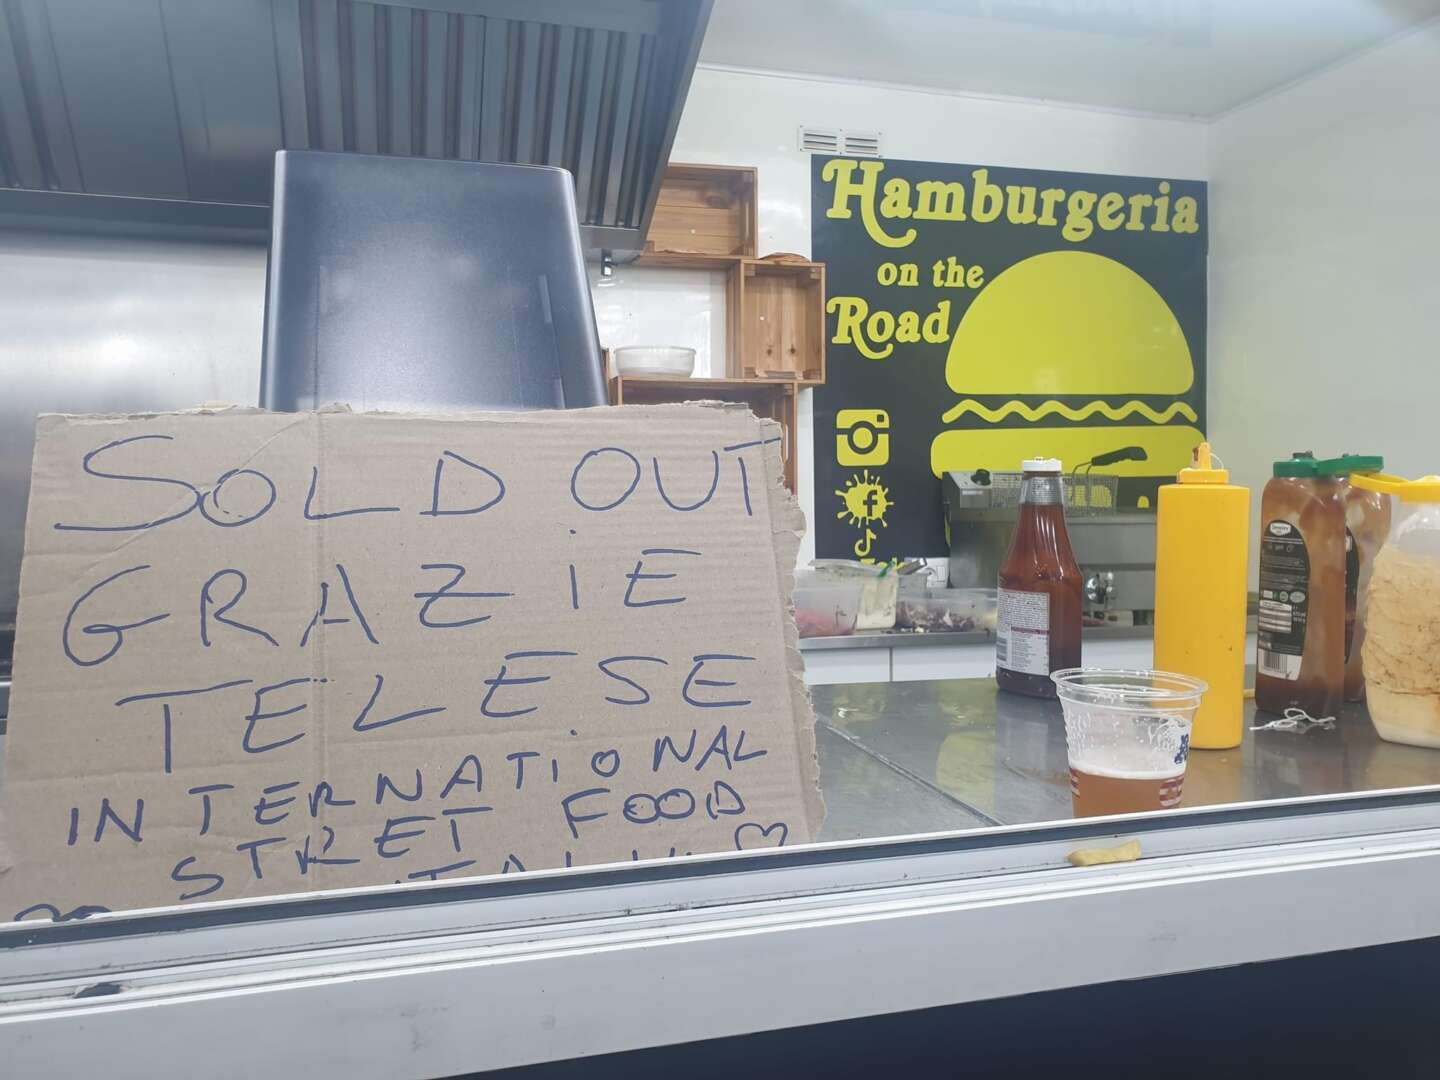 SOLD OUT
GRAZIE
TELESE
INTERNATIONAL
STRET FOOD
Hamburgeria
on the
Road